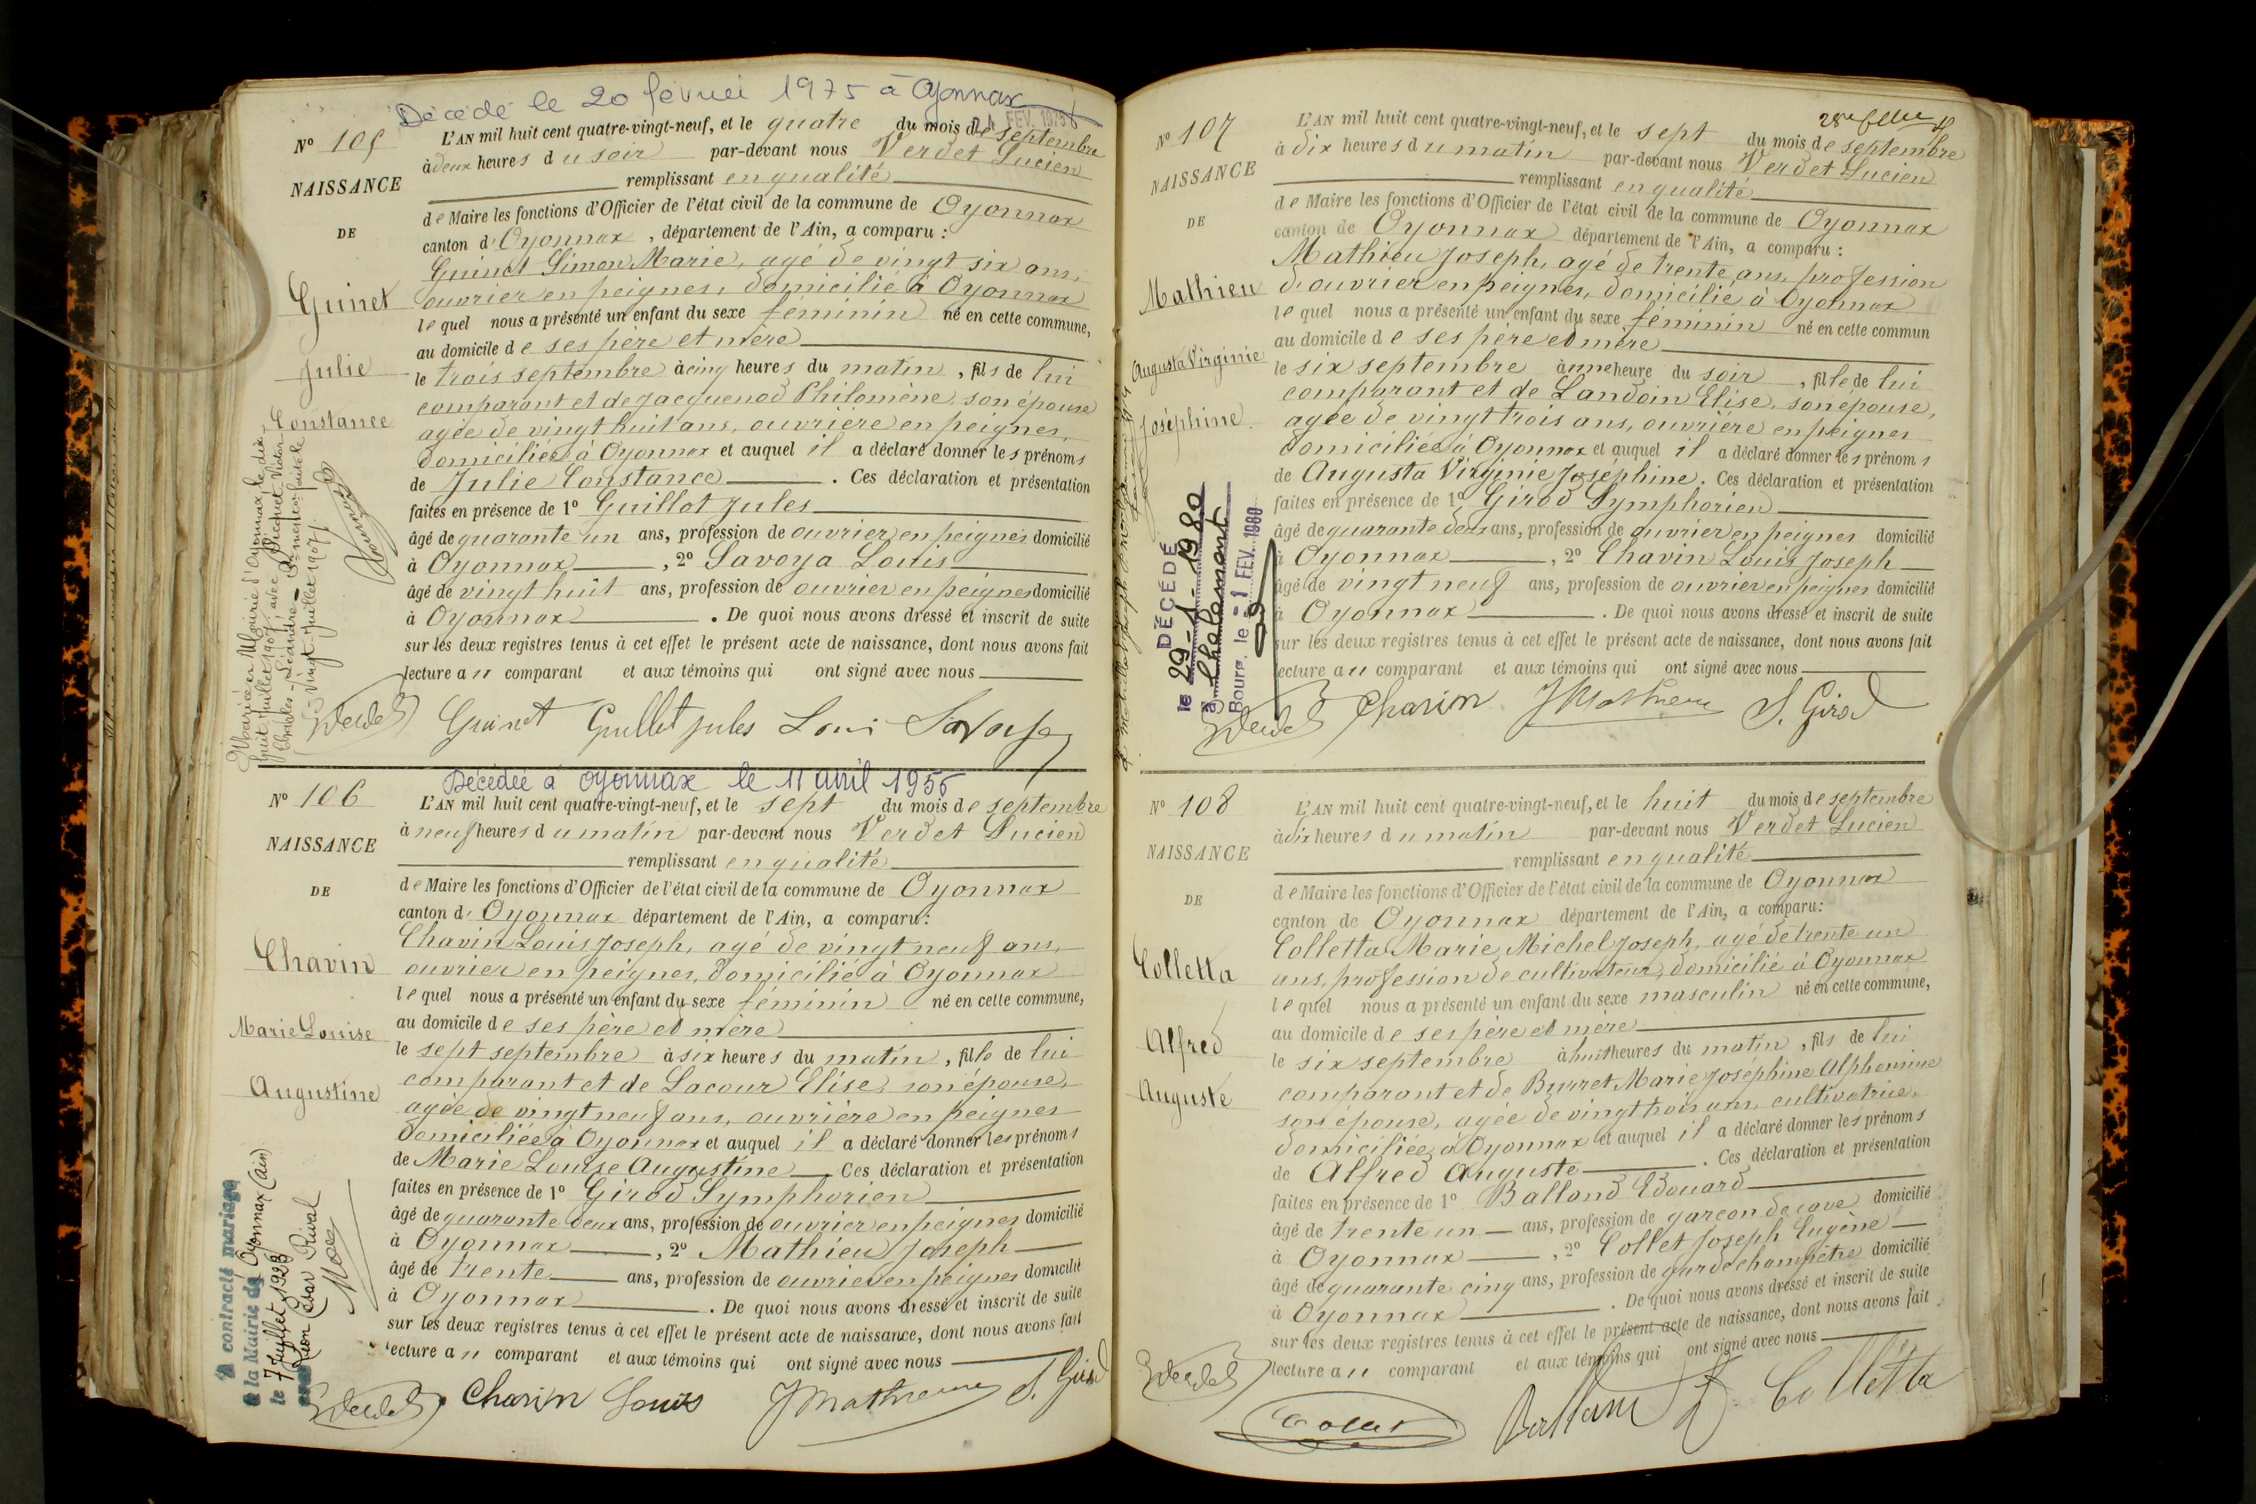 Décédé le 20 février 1975 à Oyonnax
FEV. 1975
N° 105
NAISSANCE
DE
Guinet
Julie
Constance
L'AN mil huit cent quatre-vingt-neuf, et le quatre du mois de septembre
à deux heures du soir par-devant nous Verdet Lucien
remplissant en qualité
de Maire les fonctions d'Officier de l'état civil de la commune de Oyonnax
canton d'Oyonnax, département de l'Ain, a comparu :
Guinet Simon Marie, agé de vingt six ans,
ouvrier en peignes, domicilié à Oyonnax
lequel nous a présenté un enfant du sexe féminin né en cette commune,
au domicile de ses père et mère
le trois septembre à cinq heures du matin, fils de lui
comparant et de Jacquenod Philomène, son épouse
agée de vingt huit ans, ouvrière en peignes,
domiciliée à Oyonnax et auquel il a déclaré donner les prénoms
de Julie Constance. Ces déclaration et présentation
faites en présence de 1° Guillot Jules
âgé de quarante un ans, profession de ouvrier en peignes domicilié
à Oyonnax, 2° Savoya Louis
âgé de vingt huit ans, profession de ouvrier en peignes domicilié
à Oyonnax. De quoi nous avons dressé et inscrit de suite
sur les deux registres tenus à cet effet le présent acte de naissance, dont nous avons fait
lecture au comparant et aux témoins qui ont signé avec nous
Mariée en Mairie d'Oyonnax le dix-
huit juillet 1907, avec Picquet Victor
Charles-Léandre
vingt juillet 1907.
Verdet Guinet Guillot Jules Loui Savoya
Décédée à Oyonnax le 11 avril 1956
N° 106
NAISSANCE
DE
Chavin
Marie Louise
Augustine
L'AN mil huit cent quatre-vingt-neuf, et le sept du mois de septembre
à neuf heures du matin par-devant nous Verdet Lucien
remplissant en qualité
de Maire les fonctions d'Officier de l'état civil de la commune de Oyonnax
canton d'Oyonnax département de l'Ain, a comparu :
Chavin Louis Joseph, agé de vingt neuf ans,
ouvrier en peignes, domicilié à Oyonnax
lequel nous a présenté un enfant du sexe féminin né en cette commune,
au domicile de ses père et mère
le sept septembre à six heures du matin, fille de lui
comparant et de Lacour Elise, son épouse,
agée de vingt neuf ans, ouvrière en peignes
domiciliée à Oyonnax et auquel il a déclaré donner les prénoms
de Marie Louise Augustine Ces déclaration et présentation
faites en présence de 1° Girod Symphorien
âgé de quarante deux ans, profession de ouvrier en peignes domicilié
à Oyonnax, 2° Mathieu Joseph
âgé de trente ans, profession de ouvrier en peignes domicilié
à Oyonnax. De quoi nous avons dressé et inscrit de suite
sur les deux registres tenus à cet effet le présent acte de naissance, dont nous avons fait
lecture au comparant et aux témoins qui ont signé avec nous
A contracté mariage
à la Mairie de Oyonnax (Ain)
le 7 Juillet 1928
César Rival
Verdet Chavin Louis J Mathieu S. Girod
N° 107
NAISSANCE
DE
Mathieu
Augusta Virginie
Joséphine.
L'AN mil huit cent quatre-vingt-neuf, et le sept du mois de septembre
à dix heures du matin par-devant nous Verdet Lucien
remplissant en qualité
de Maire les fonctions d'Officier de l'état civil de la commune de Oyonnax
canton de Oyonnax département de l'Ain, a comparu :
Mathieu Joseph, agé de trente ans, profession
d'ouvrier en peignes, domicilié à Oyonnax
lequel nous a présenté un enfant du sexe féminin né en cette commun
au domicile de ses père et mère
le six septembre à une heure du soir, fille de lui
comparant et de Landoin Elise, son épouse,
agée de vingt trois ans, ouvrière en peignes
domiciliée à Oyonnax et auquel il a déclaré donner les prénoms
de Augusta Virginie Joséphine. Ces déclaration et présentation
faites en présence de 1° Girod Symphorien
âgé de quarante deux ans, profession de ouvrier en peignes domicilié
à Oyonnax, 2° Chavin Louis Joseph
âgé de vingt neuf ans, profession de ouvrier en peignes domicilié
à Oyonnax. De quoi nous avons dressé et inscrit de suite
sur les deux registres tenus à cet effet le présent acte de naissance, dont nous avons fait
lecture au comparant et aux témoins qui ont signé avec nous
DÉCÉDÉ
le 29-1-1980
à Chalamont
Bourg, le - 1 FEV. 1980
Verdet Chavin J Mathieu S. Girod
N° 108
NAISSANCE
DE
Colletta
Alfred
Auguste
L'AN mil huit cent quatre-vingt-neuf, et le huit du mois de septembre
à dix heures du matin par-devant nous Verdet Lucien
remplissant en qualité
de Maire les fonctions d'Officier de l'état civil de la commune de Oyonnax
canton de Oyonnax département de l'Ain, a comparu :
Colletta Marie Michel Joseph, agé de trente un
ans, profession de cultivateur, domicilié à Oyonnax
lequel nous a présenté un enfant du sexe masculin né en cette commune,
au domicile de ses père et mère
le six septembre à huit heures du matin, fils de lui
comparant et de Burret Marie Joséphine Alphonsine
son épouse, agée de vingt trois ans, cultivatrice,
domiciliée à Oyonnax et auquel il a déclaré donner les prénoms
de Alfred Auguste. Ces déclaration et présentation
faites en présence de 1° Balland Edouard
âgé de trente un ans, profession de garçon de cave domicilié
à Oyonnax, 2° Collet Joseph Eugène
âgé de quarante cinq ans, profession de garde champêtre domicilié
à Oyonnax. De quoi nous avons dressé et inscrit de suite
sur les deux registres tenus à cet effet le présent acte de naissance, dont nous avons fait
lecture au comparant et aux témoins qui ont signé avec nous
Verdet Collet Balland Colletta